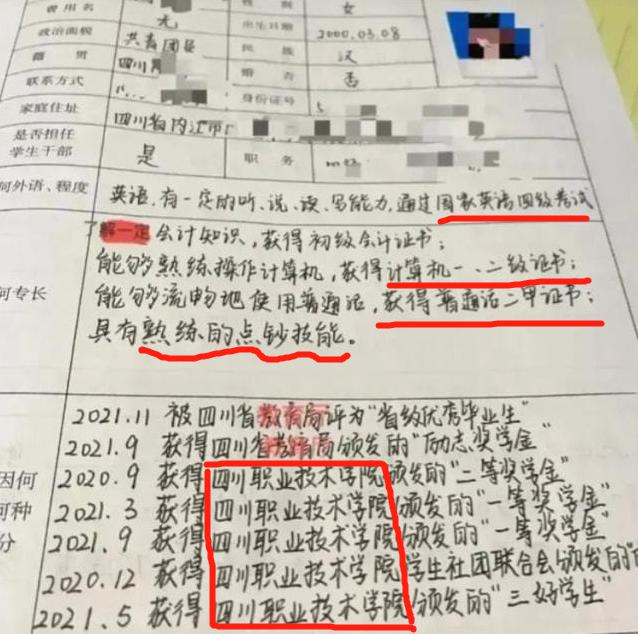 曾用名 无 性别 女
政治面貌 共青团员 出生日期 2000.03.08
籍贯 四川 民族 汉
联系方式 婚否 否
家庭住址 四川省内江市 身份证号
是否担任学生干部 是 职务
何外语、程度 英语,有一定的听、说、读、写能力,通过国家英语四级考试
了解一定会计知识,获得初级会计证书;
能够熟练操作计算机,获得计算机一、二级证书;
何专长 能够流畅地使用普通话,获得普通话二甲证书;
具有熟练的点钞技能。
2021.11 被四川省教育局评为"省级优秀毕业生"
2021.9 获得四川省教育局颁发的"励志奖学金"
因何 2020.9 获得四川职业技术学院颁发的"二等奖学金"
何种 2021.3 获得四川职业技术学院颁发的"一等奖学金"
分 2021.9 获得四川职业技术学院颁发的"一等奖学金"
2020.12 获得四川职业技术学院学生社团联合会颁发的"
2021.5 获得四川职业技术学院颁发的"三好学生"